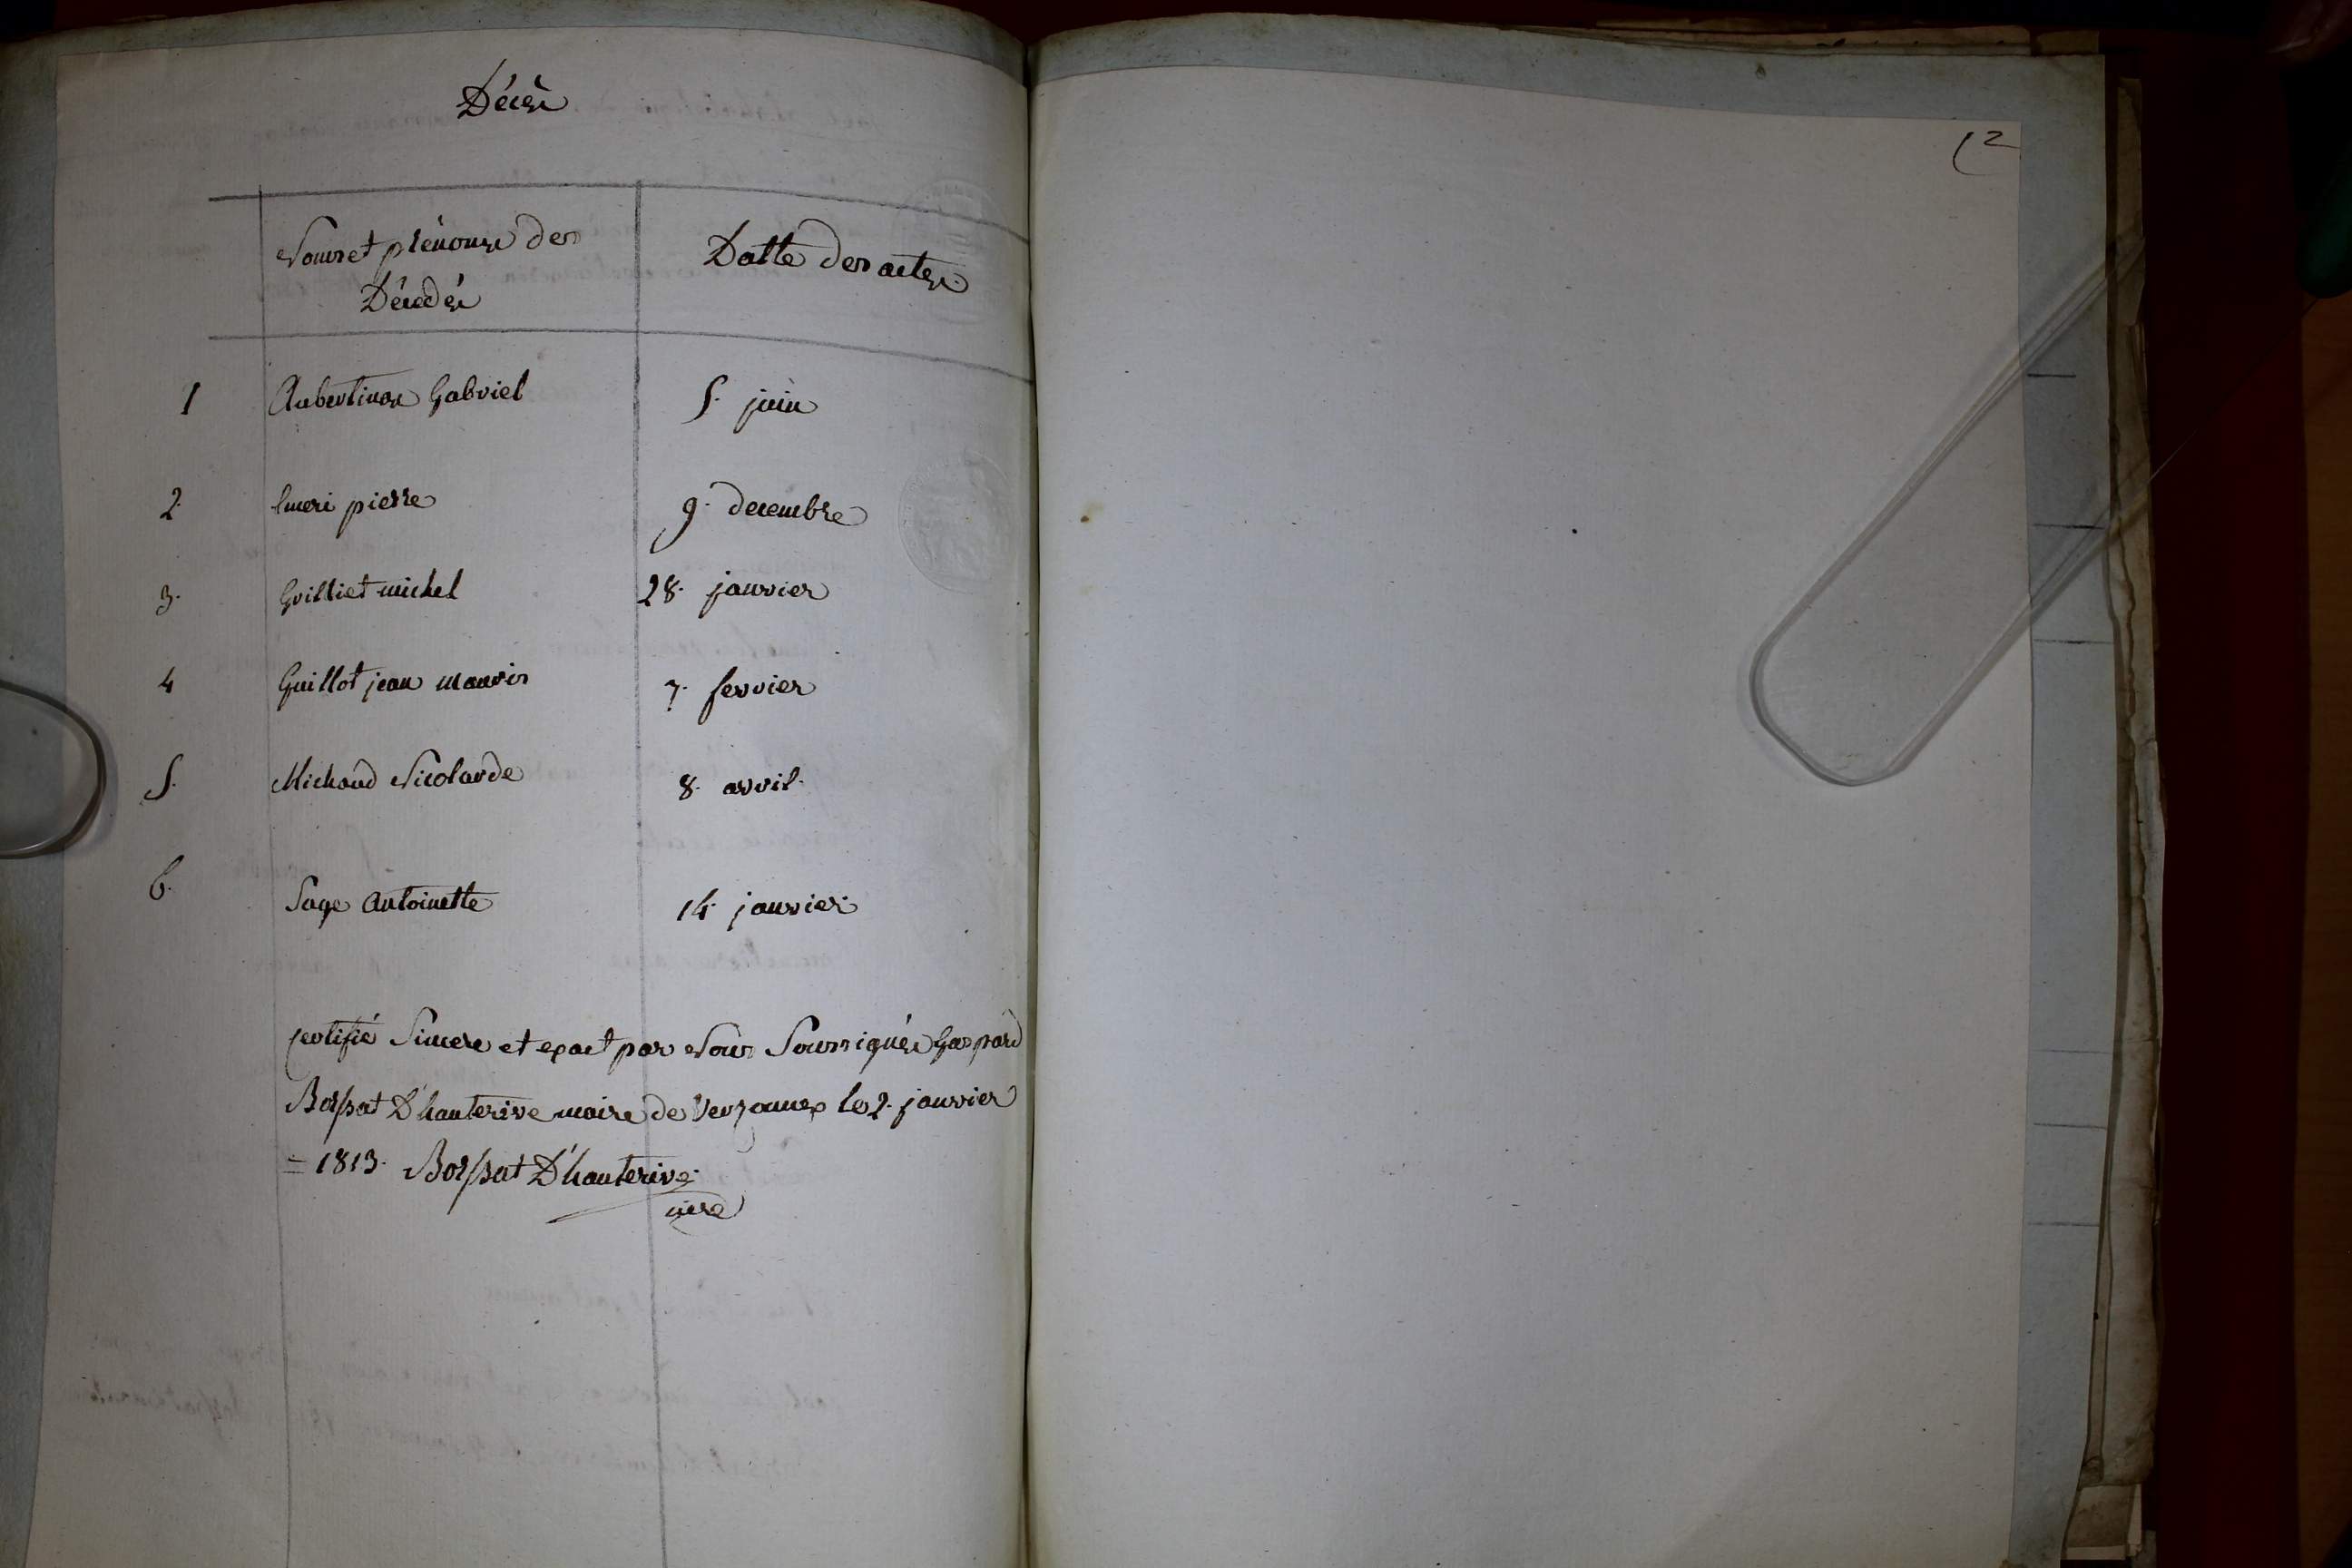 Décès
Noms et prénoms des
Décedés
Datte des actes
1 Aubertinon Gabriel 5. juin
2. Emeri pierre 9. decembre
3. Guilliet michel 28. janvier
4 Guillot jean mauris 7. fevrier
5. Michaud Nicolarde 8. avril.
6. Sage Antoinette 14. janvier.
Certifié Sincere et exact par Nous Soussignés Gaspard
Borssat D'hauterive maire de le 2. janvier
= 1813. Borssat D'hauterive.
mre
2